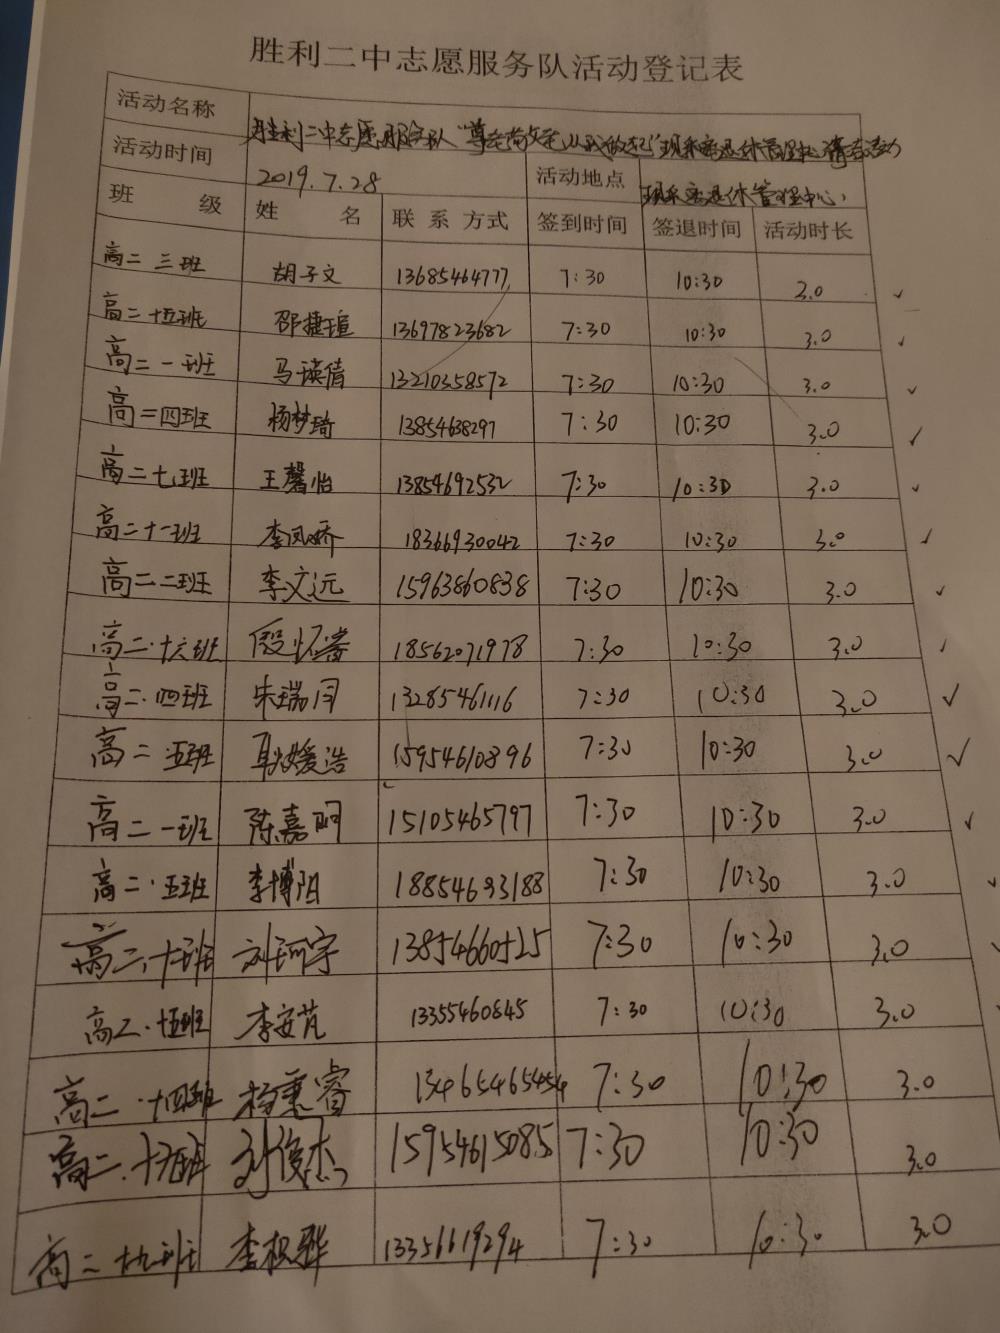 胜利二中志愿服务队活动登记表
活动名称 胜利二中志愿服务队"尊老尚文老从我做起"现采离退休管理中心清洁活动
活动时间 2019.7.28 活动地点 现采离退休管理中心
班 级 姓 名 联系方式 签到时间 签退时间 活动时长
高二 三班 胡子文 13685464777 7:30 10:30 3.0 ✓
高二 十五班 邵捷瑄 13697823682 7:30 10:30 3.0 ✓
高二 一班 马瑛倩 13210358572 7:30 10:30 3.0 ✓
高二 四班 杨梦琦 13854638297 7:30 10:30 3.0 ✓
高二 七班 王馨怡 13854692532 7:30 10:30 3.0 ✓
高二 十一班 李凤娇 18366930042 7:30 10:30 3.0 ✓
高二 二班 李文远 15963860838 7:30 10:30 3.0 ✓
高二·十六班 殷怀睿 18562071978 7:30 10:30 3.0 ✓
高二·四班 朱瑞闫 13285461116 7:30 10:30 3.0 ✓
高二·五班 耿媛浩 15954610896 7:30 10:30 3.0 ✓
高二 一班 陈嘉明 15105465797 7:30 10:30 3.0 ✓
高二·五班 李博阳 18854693188 7:30 10:30 3.0 ✓
高二·十班 刘珂宇 13854660525 7:30 10:30 3.0
高二·十五班 李安芃 13355460845 7:30 10:30 3.0
高二·十四班 杨秉睿 13465465454 7:30 10:30 3.0
高二·十五班 刘俊杰 15954615085 7:30 10:30 3.0
高二 十九班 李权骅 13356619294 7:30 10:30 3.0